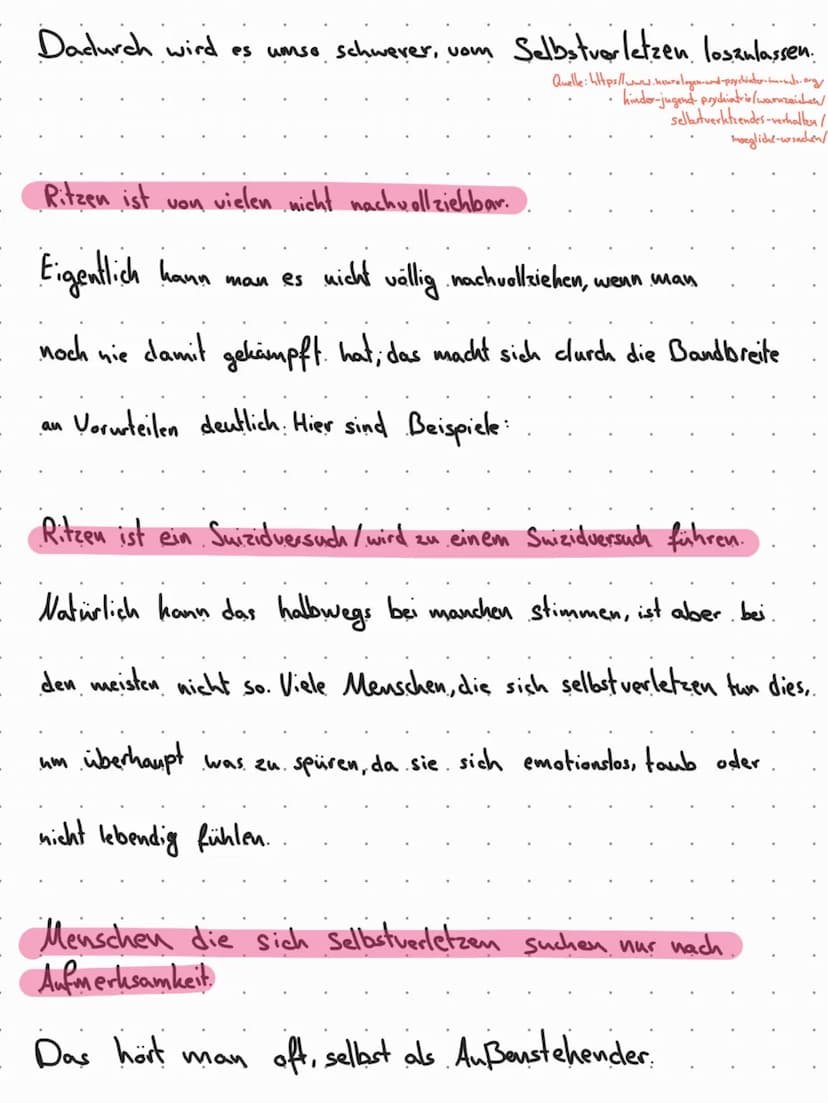 Dadurch wird es umso schwerer, vom Selbstverletzen loszulassen.
Quelle: https://www.neurologen-und-psychiater-im-netz.org/
kinder-jugend-psychiatrie/warnzeichen/
selbstverletzendes-verhalten/
moegliche-ursachen/
Ritzen ist von vielen nicht nachvollziehbar.
Eigentlich kann man es nicht völlig nachvollziehen, wenn man
noch nie damit gekämpft hat, das macht sich durch die Bandbreite
an Vorurteilen deutlich. Hier sind Beispiele:
Ritzen ist ein Suizidversuch/wird zu einem Suizidversuch führen.
Natürlich kann das halbwegs bei manchen stimmen, ist aber bei
den meisten nicht so. Viele Menschen, die sich selbstverletzen tun dies,
um überhaupt was zu spüren, da sie sich emotionslos, taub oder
nicht lebendig fühlen.
Menschen die sich selbstverletzen suchen nur nach
Aufmerksamkeit.
Das hört man oft, selbst als Außenstehender.